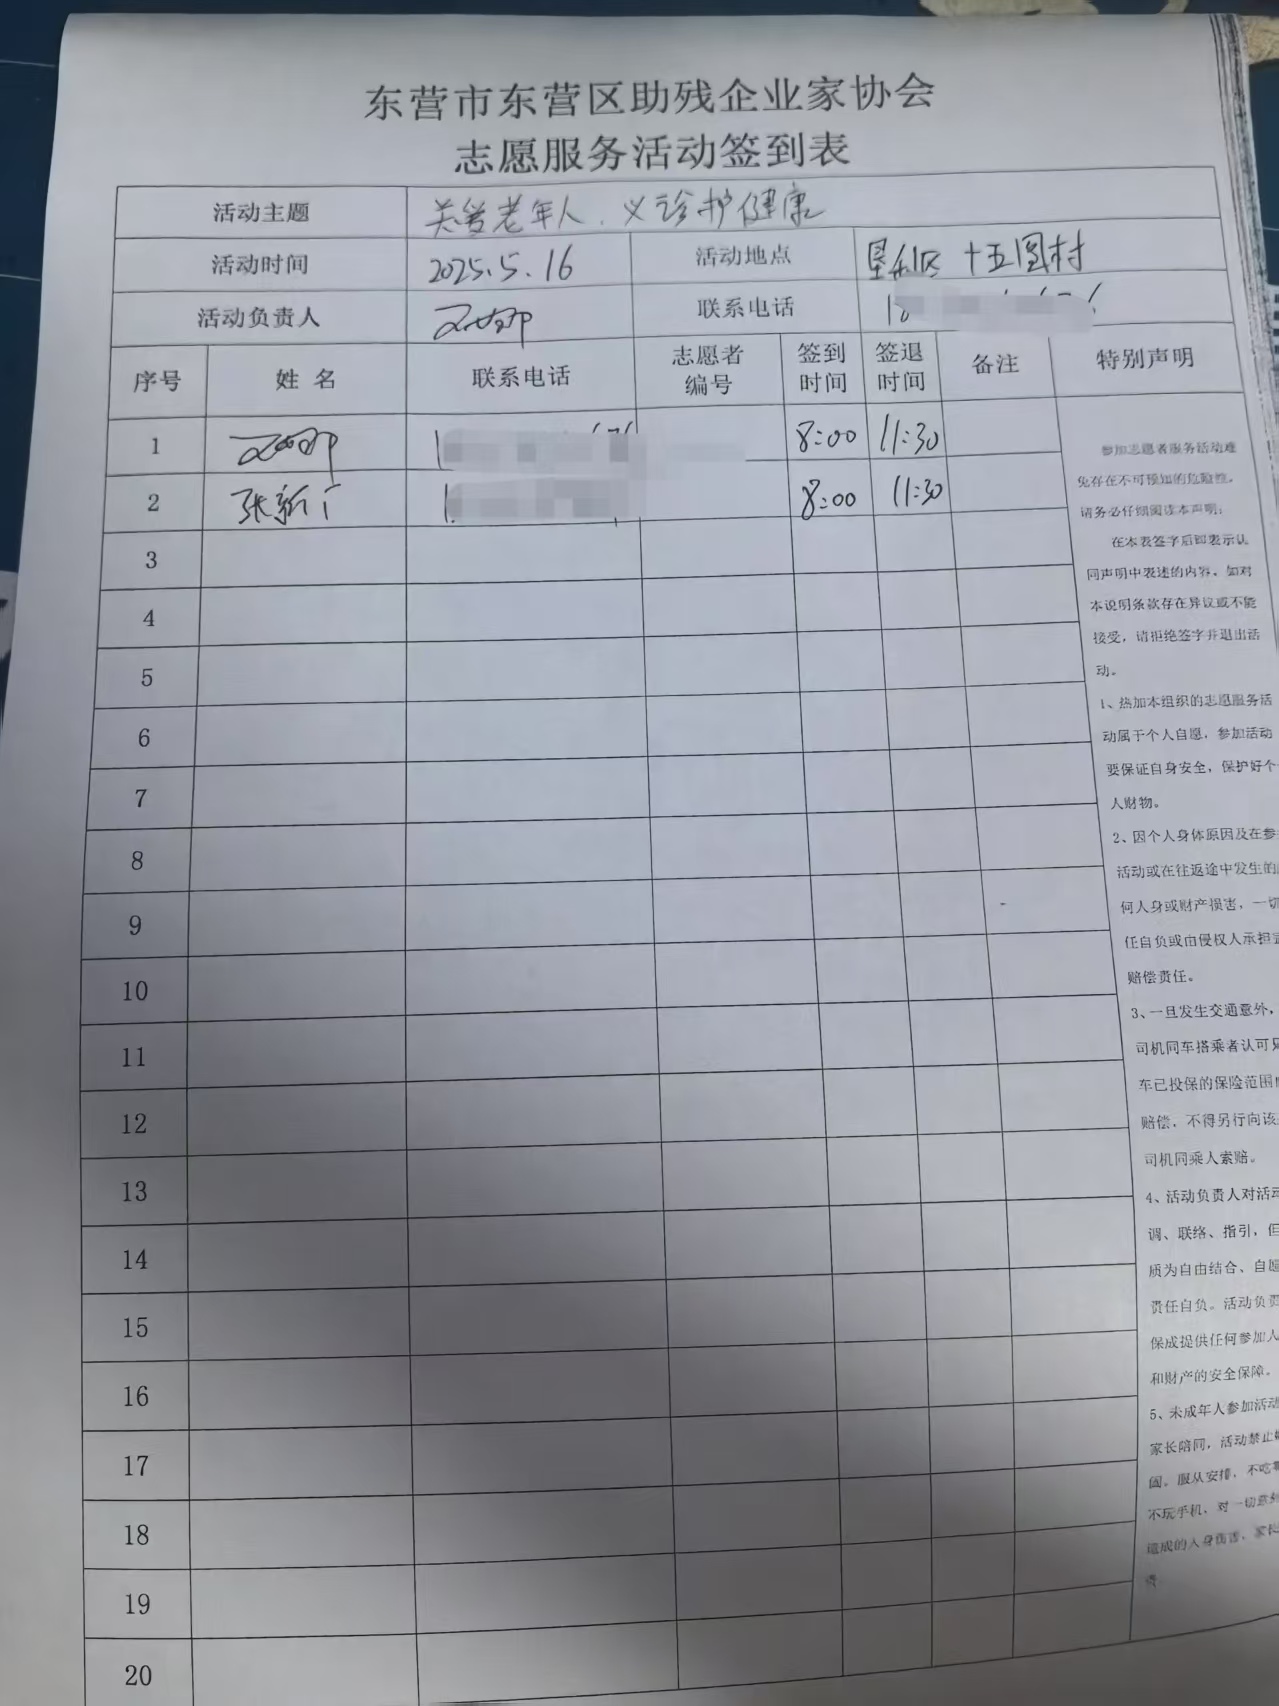 东营市东营区助残企业家协会
志愿服务活动签到表
活动主题 关爱老年人、义诊护健康
活动时间 2025.5.16 活动地点 垦利区 十五图村
活动负责人 联系电话
序号 姓名 联系电话 志愿者编号 签到时间 签退时间 备注 特别声明
1 8:00 11:30
2 张新广 8:00 11:30
3
4
5
6
7
8
9
10
11
12
13
14
15
16
17
18
19
20
参加志愿者服务活动难
免存在不可预知的危险性,
请务必仔细阅读本声明:
在本表签字后即表示认
同声明中表述的内容。如对
本说明条款存在异议或不能
接受,请拒绝签字并退出活
动。
1、热加本组织的志愿服务活
动属于个人自愿,参加活动
要保证自身安全,保护好个
人财物。
2、因个人身体原因及在参
活动或在往返途中发生的
何人身或财产损害,一切
任自负或由侵权人承担
赔偿责任。
3、一旦发生交通意外,
司机同车搭乘者认可
车已投保的保险范围
赔偿,不得另行向该
司机同乘人索赔。
4、活动负责人对活动
调、联络、指引,但
质为自由结合、自愿
责任自负。活动负责
保成提供任何参加人
和财产的安全保障。
5、未成年人参加活动
家长陪同,活动禁止
服从安排,不吃
不玩手机,对一切意外
造成的人身伤害,家长
责